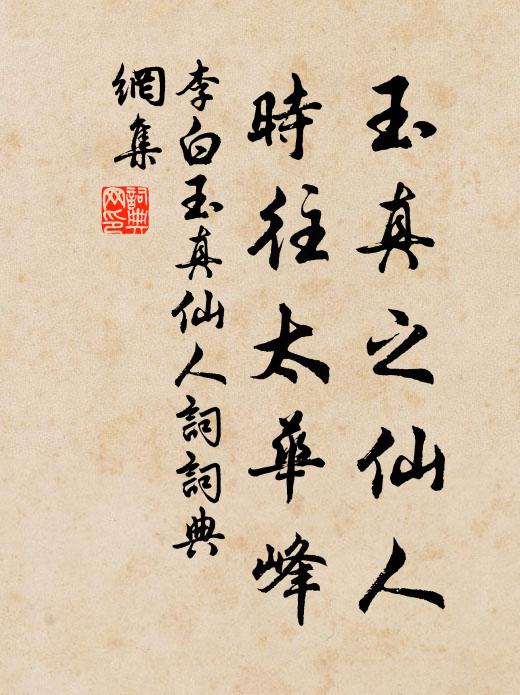 玉真之仙人
時往太華峰
李白玉真仙人詞詞典
網集
詞典
网印